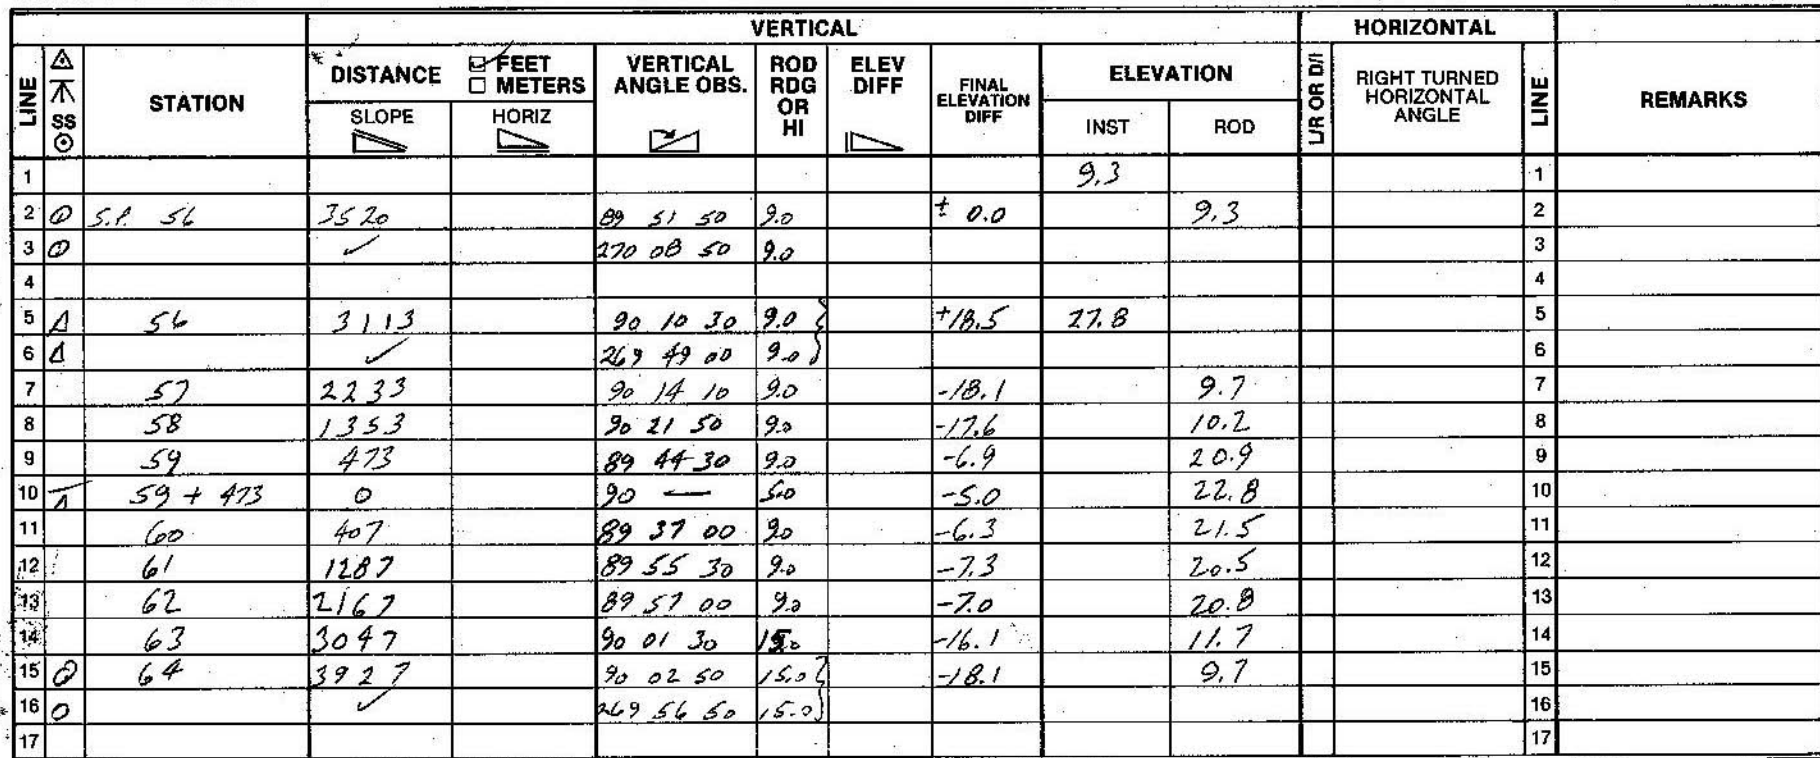 VERTICAL HORIZONTAL
LINE SS STATION DISTANCE FEET METERS VERTICAL ANGLE OBS. ROD RDG OR HI ELEV DIFF FINAL ELEVATION DIFF ELEVATION L/R OR D/I RIGHT TURNED HORIZONTAL ANGLE LINE REMARKS
SLOPE HORIZ INST ROD
1 9.3 1
2 S.P. 56 3520 89 51 50 9.0 ± 0.0 9.3 2
3 ✓ 270 08 50 9.0 3
4 4
5 Δ 56 3113 90 10 30 9.0 +18.5 27.8 5
6 Δ ✓ 269 49 00 9.0 6
7 57 2233 90 14 10 9.0 -18.1 9.7 7
8 58 1353 90 21 50 9.0 -17.6 10.2 8
9 59 473 89 44 30 9.0 -6.9 20.9 9
10 59 + 473 0 90 — 5.0 -5.0 22.8 10
11 60 407 89 37 00 9.0 -6.3 21.5 11
12 61 1287 89 55 30 9.0 -7.3 20.5 12
13 62 2167 89 57 00 9.0 -7.0 20.8 13
14 63 3047 90 01 30 15.0 -16.1 11.7 14
15 64 3927 90 02 50 15.0 -18.1 9.7 15
16 ✓ 269 56 50 15.0 16
17 17